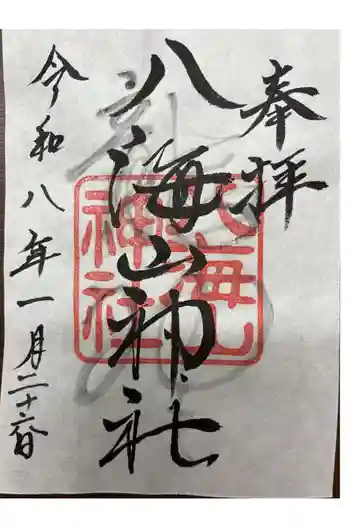 奉拝
八海山神社
八海山
神社
令和八年一月二十六日